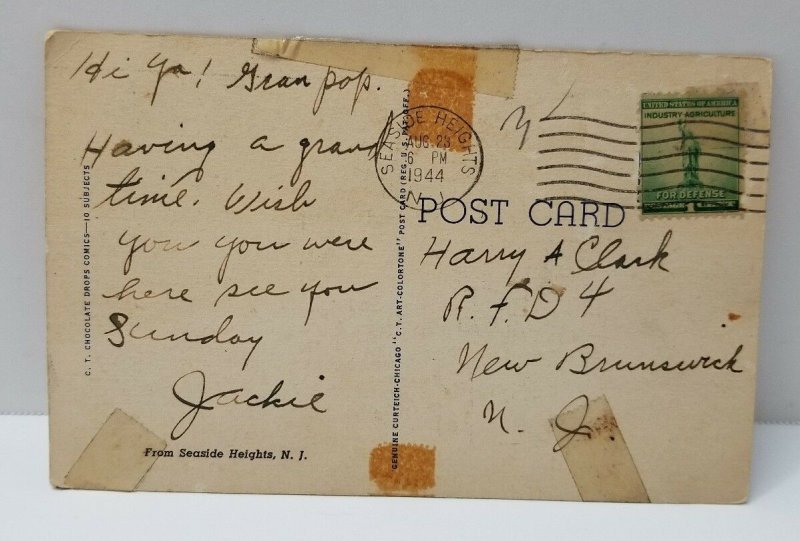 Hi Ya! Gran pop.
Having a grand
time. Wish
you you were
here see you
Sunday
Jackie
From Seaside Heights, N. J.
C. T. CHOCOLATE DROPS COMICS—10 SUBJECTS
GENUINE CURTEICH-CHICAGO "C.T. ART-COLORTONE" POST CARD (REG. U.S. PAT. OFF.)
SEASIDE HEIGHTS
AUG 23
6 PM
1944
N. J.
UNITED STATES OF AMERICA
INDUSTRY AGRICULTURE
FOR DEFENSE
1
POST CARD
Harry A Clark
R.F.D 4
New Brunswick
N. J.